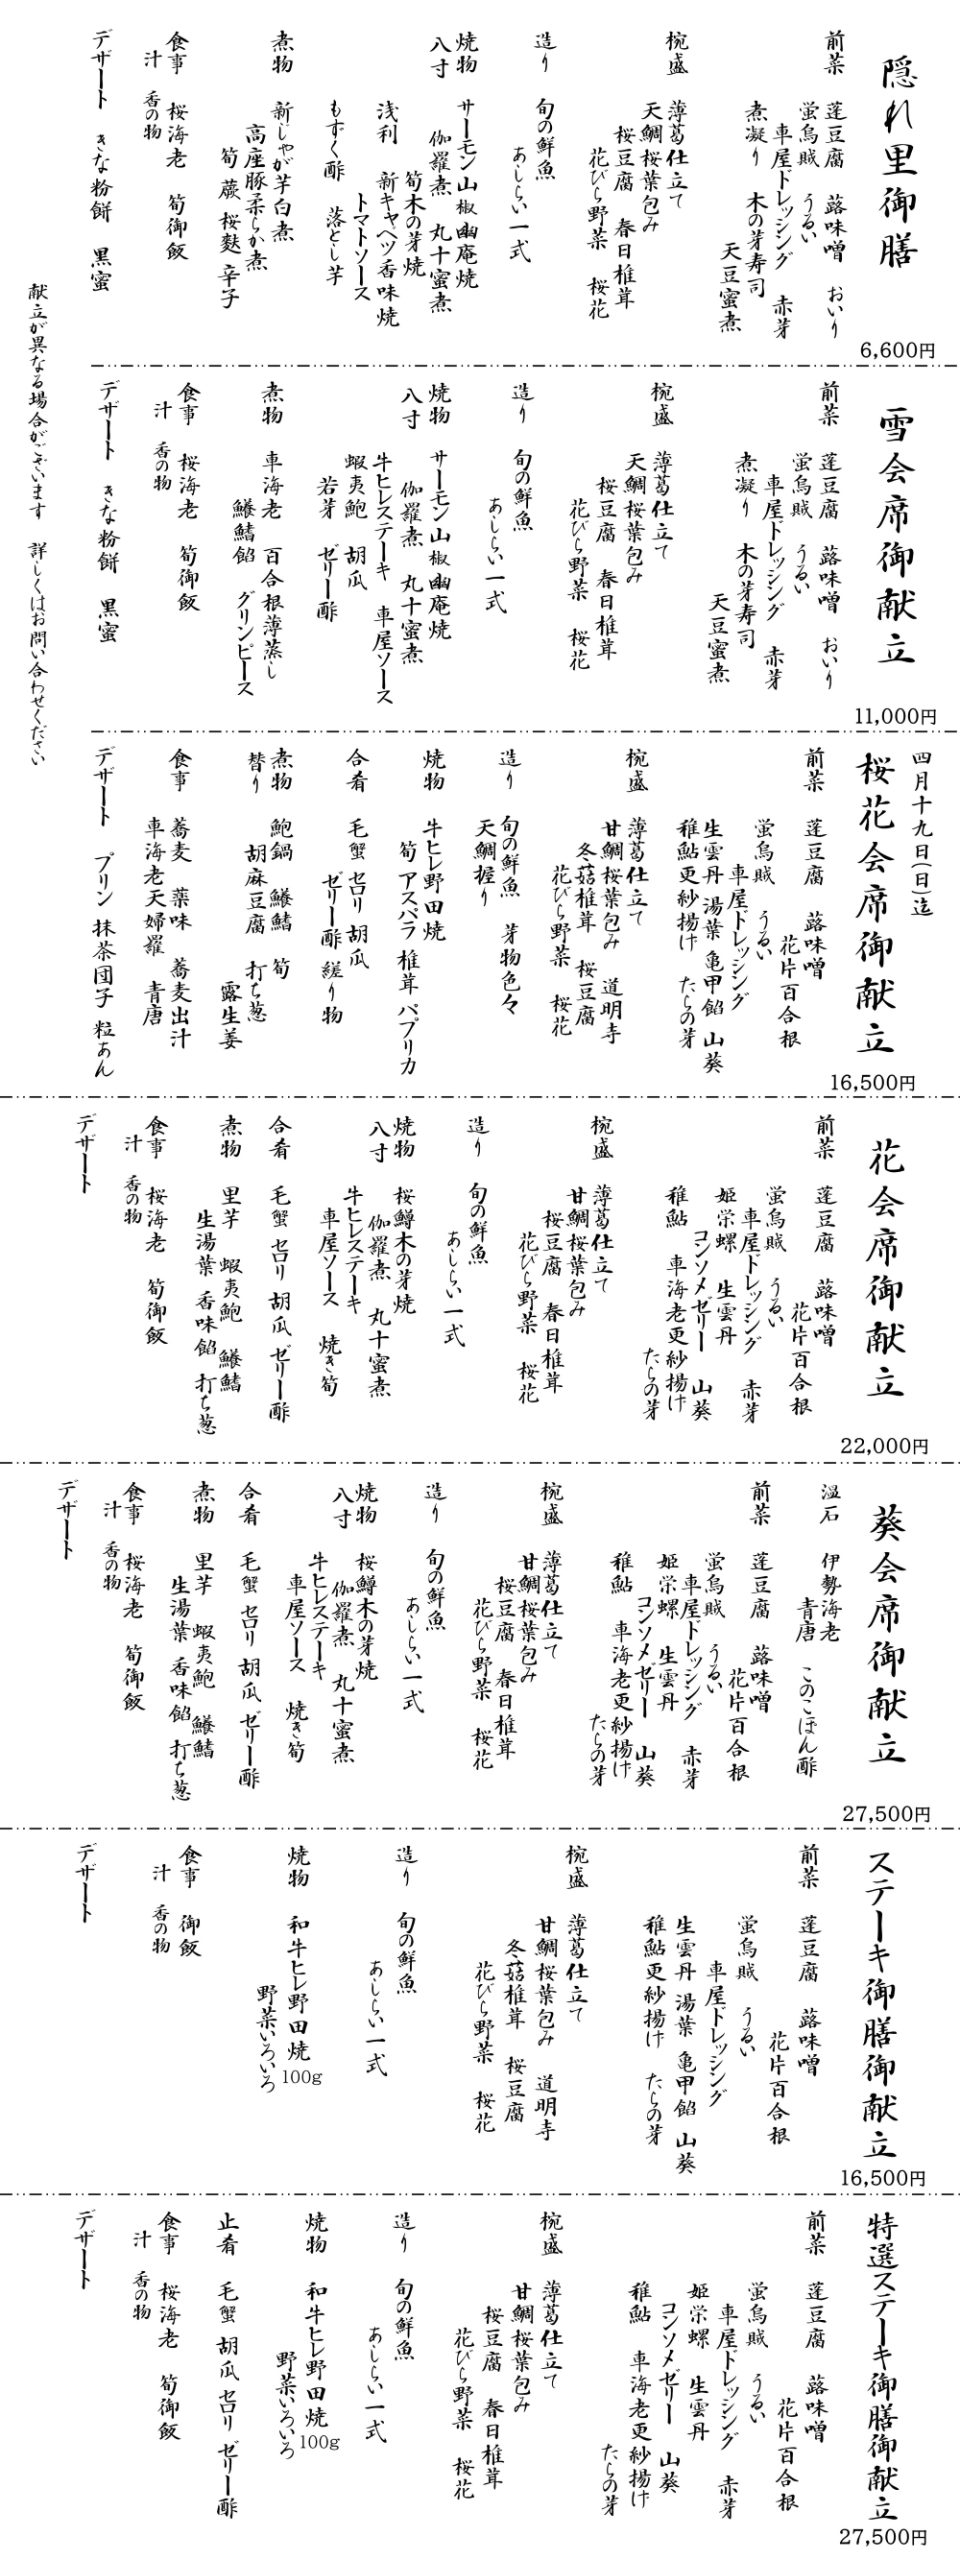 隠れ里御膳
6,600円
前菜 蓬豆腐 蕗味噌 おいり
蛍烏賊 うるい
車屋ドレッシング 赤芽
煮凝り 木の芽寿司
天豆蜜煮
椀盛 薄葛仕立て
天鯛桜葉包み
桜豆腐 春日椎茸
花びら野菜 桜花
造り 旬の鮮魚
あしらい一式
焼物 サーモン山椒幽庵焼
八寸 伽羅煮 丸十蜜煮
筍木の芽焼
浅利 新キャベツ香味焼
トマトソース
もずく酢 落とし芋
煮物 新じゃが芋白煮
高座豚柔らか煮
筍 蕨 桜麩 辛子
食事 桜海老 筍御飯
汁 香の物
デザート きな粉餅 黒蜜
雪会席御献立
11,000円
前菜 蓬豆腐 蕗味噌 おいり
蛍烏賊 うるい
車屋ドレッシング 赤芽
煮凝り 木の芽寿司
天豆蜜煮
椀盛 薄葛仕立て
天鯛桜葉包み
桜豆腐 春日椎茸
花びら野菜 桜花
造り 旬の鮮魚
あしらい一式
焼物 サーモン山椒幽庵焼
八寸 伽羅煮 丸十蜜煮
牛ヒレステーキ 車屋ソース
蝦夷鮑 胡瓜
若芽 ゼリー酢
煮物 車海老 百合根薄蒸し
鱶鰭餡 グリンピース
食事 桜海老 筍御飯
汁 香の物
デザート きな粉餅 黒蜜
四月十九日(日)迄
桜花会席御献立
16,500円
前菜 蓬豆腐 蕗味噌
花片百合根
蛍烏賊 うるい
車屋ドレッシング
生雲丹 湯葉 亀甲餡 山葵
稚鮎更紗揚げ たらの芽
椀盛 薄葛仕立て
甘鯛桜葉包み 道明寺
冬菇椎茸 桜豆腐
花びら野菜 桜花
造り 旬の鮮魚 芽物色々
天鯛握り
焼物 牛ヒレ野田焼
筍 アスパラ 椎茸 パプリカ
合肴 毛蟹 セロリ 胡瓜
ゼリー酢 縒り物
煮物 鮑鍋 鱶鰭 筍
替り 胡麻豆腐 打ち葱
露生姜
食事 蕎麦 薬味 蕎麦出汁
車海老天婦羅 青唐
デザート プリン 抹茶団子 粒あん
花会席御献立
22,000円
前菜 蓬豆腐 蕗味噌
花片百合根
蛍烏賊 うるい
車屋ドレッシング 赤芽
姫栄螺 生雲丹
コンソメゼリー 山葵
稚鮎 車海老更紗揚げ
たらの芽
椀盛 薄葛仕立て
甘鯛桜葉包み
桜豆腐 春日椎茸
花びら野菜 桜花
造り 旬の鮮魚
あしらい一式
焼物 桜鱒木の芽焼
八寸 伽羅煮 丸十蜜煮
牛ヒレステーキ
車屋ソース 焼き筍
合肴 毛蟹 セロリ 胡瓜 ゼリー酢
煮物 里芋 蝦夷鮑 鱶鰭
生湯葉 香味餡 打ち葱
食事 桜海老 筍御飯
汁 香の物
デザート
葵会席御献立
27,500円
温石 伊勢海老
青唐 このこぽん酢
前菜 蓬豆腐 蕗味噌
花片百合根
蛍烏賊 うるい
車屋ドレッシング 赤芽
姫栄螺 生雲丹
コンソメゼリー 山葵
稚鮎 車海老更紗揚げ
たらの芽
椀盛 薄葛仕立て
甘鯛桜葉包み
桜豆腐 春日椎茸
花びら野菜 桜花
造り 旬の鮮魚
あしらい一式
焼物 桜鱒木の芽焼
八寸 伽羅煮 丸十蜜煮
牛ヒレステーキ
車屋ソース 焼き筍
合肴 毛蟹 セロリ 胡瓜 ゼリー酢
煮物 里芋 蝦夷鮑 鱶鰭
生湯葉 香味餡 打ち葱
食事 桜海老 筍御飯
汁 香の物
デザート
ステーキ御膳御献立
16,500円
前菜 蓬豆腐 蕗味噌
花片百合根
蛍烏賊 うるい
車屋ドレッシング
生雲丹 湯葉 亀甲餡 山葵
稚鮎更紗揚げ たらの芽
椀盛 薄葛仕立て
甘鯛桜葉包み 道明寺
冬菇椎茸 桜豆腐
花びら野菜 桜花
造り 旬の鮮魚
あしらい一式
焼物 和牛ヒレ野田焼 100g
野菜いろいろ
食事 御飯
汁 香の物
デザート
特選ステーキ御膳御献立
27,500円
前菜 蓬豆腐 蕗味噌
花片百合根
蛍烏賊 うるい
車屋ドレッシング 赤芽
姫栄螺 生雲丹
コンソメゼリー 山葵
稚鮎 車海老更紗揚げ
たらの芽
椀盛 薄葛仕立て
甘鯛桜葉包み
桜豆腐 春日椎茸
花びら野菜 桜花
造り 旬の鮮魚
あしらい一式
焼物 和牛ヒレ野田焼 100g
野菜いろいろ
止肴 毛蟹 胡瓜 セロリ ゼリー酢
食事 桜海老 筍御飯
汁 香の物
デザート
献立が異なる場合がございます 詳しくはお問い合わせください